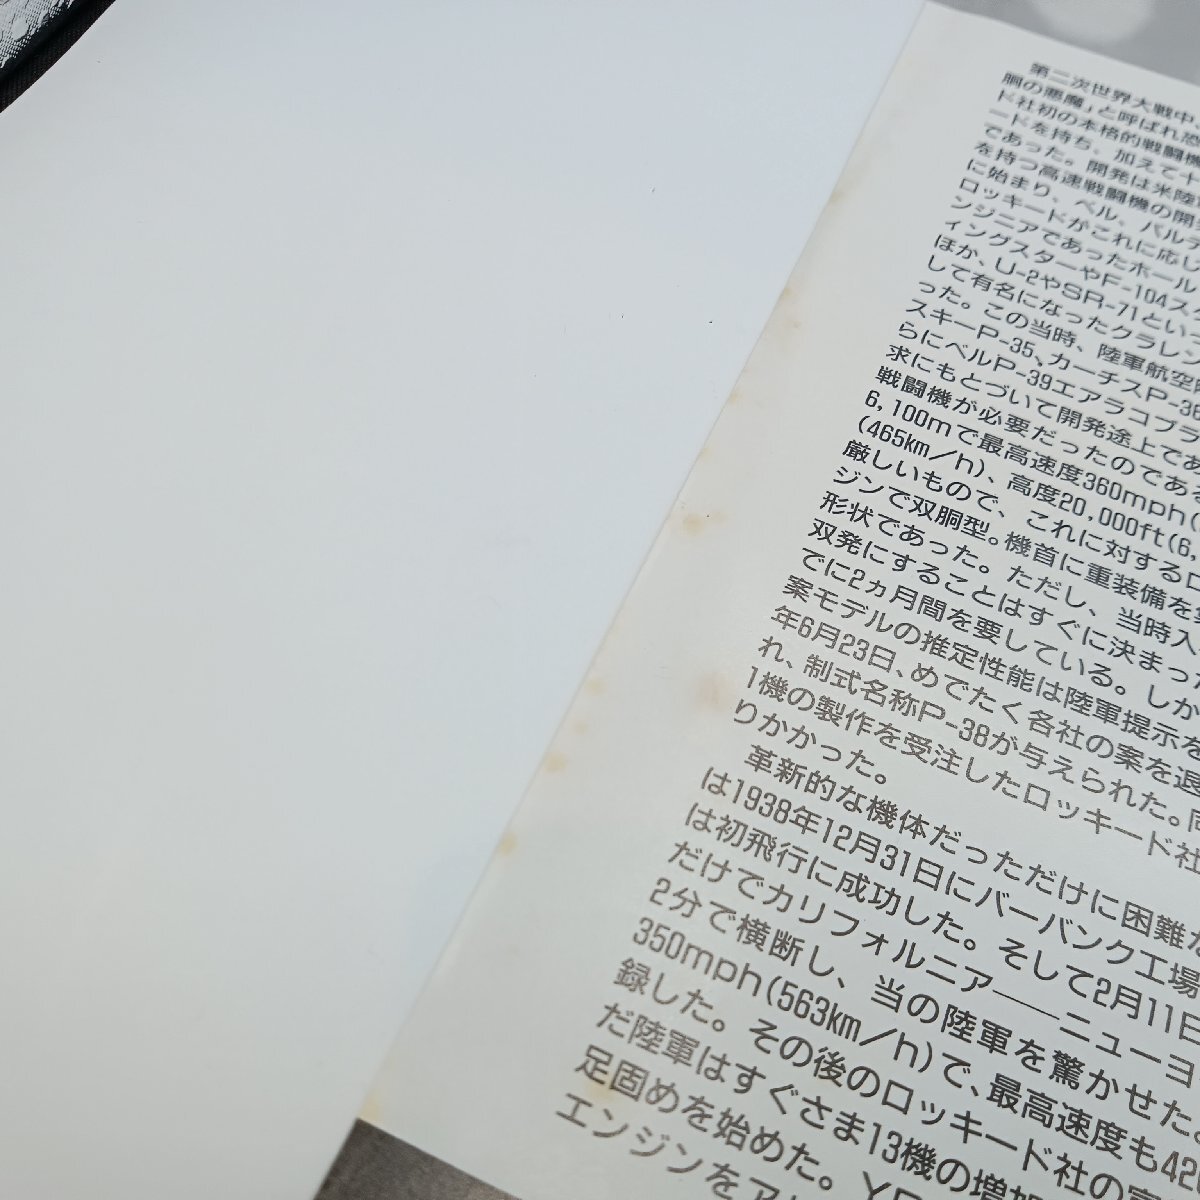 第二次世界大戦中、
胴の悪魔」と呼ばれ恐
ド社初の本格的戦闘機
ードを持ち、加えて十
であった。開発は米陸
を持つ高速戦闘機の開
に始まり、ベル、バルテ
ロッキードがこれに応じ
ンジニアであったホール
ィングスターやF-104ス
ほか、U-2やSR-71といっ
して有名になったクラレン
った。この当時、陸軍航空
スキーP-35、カーチスP-36
らにベルP-39エアラコブラ
求にもとづいて開発途上であ
戦闘機が必要だったのである
6,100mで最高速度360mph(
(465km/h)、高度20,000ft(6,
厳しいもので、これに対するロ
ジンで双胴型。機首に重装備を
形状であった。ただし、当時入
双発にすることはすぐに決まった
でに2ヵ月間を要している。しか
案モデルの推定性能は陸軍提示を
年6月23日、めでたく各社の案を退
れ、制式名称P-38が与えられた。同
1機の製作を受注したロッキード社
りかかった。
革新的な機体だっただけに困難
は1938年12月31日にバーバンク工場
は初飛行に成功した。そして2月11日
だけでカリフォルニア──ニューヨ
2分で横断し、当の陸軍を驚かせた。
350mph(563km/h)で、最高速度も42
録した。その後のロッキード社の
だ陸軍はすぐさま13機の増
足固めを始めた。
エンジンをア